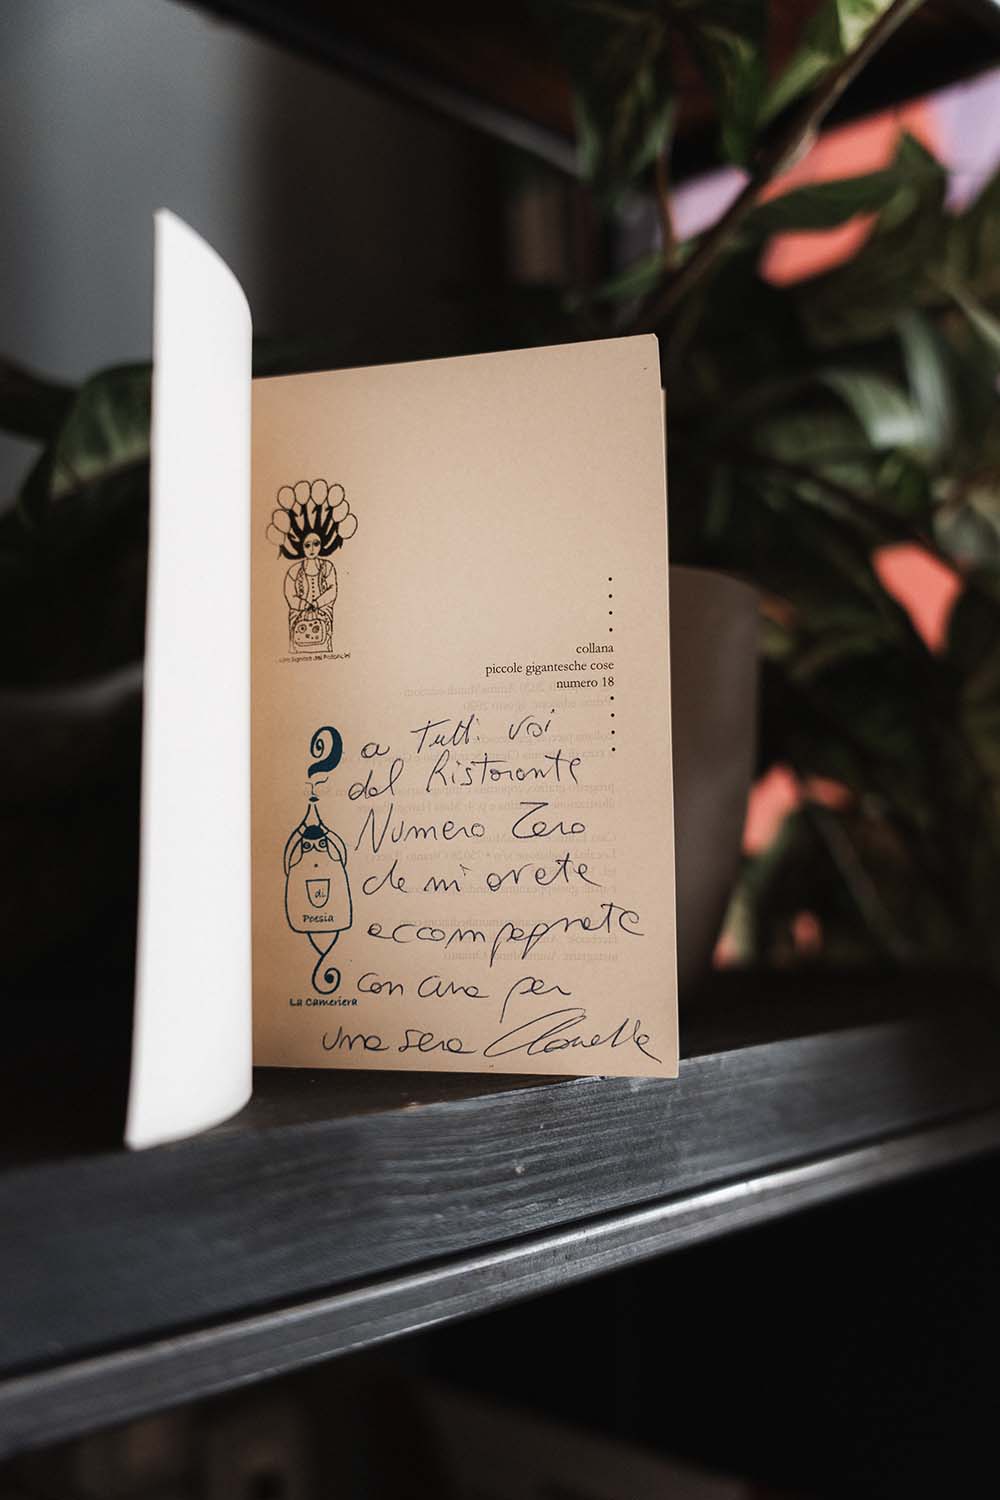 Signora dei Palloncini
collana
piccole gigantesche cose
numero 18
a Tutti voi
del Ristorante
Numero Zero
che mi avete
accompagnate
con cura per
una sera
di
Poesia
La Cameriera